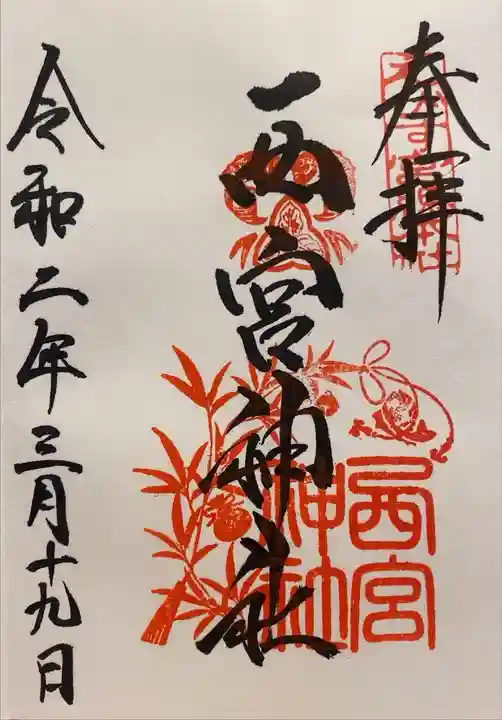 奉拝
西宮神社
西宮
神社
令和二年三月十九日